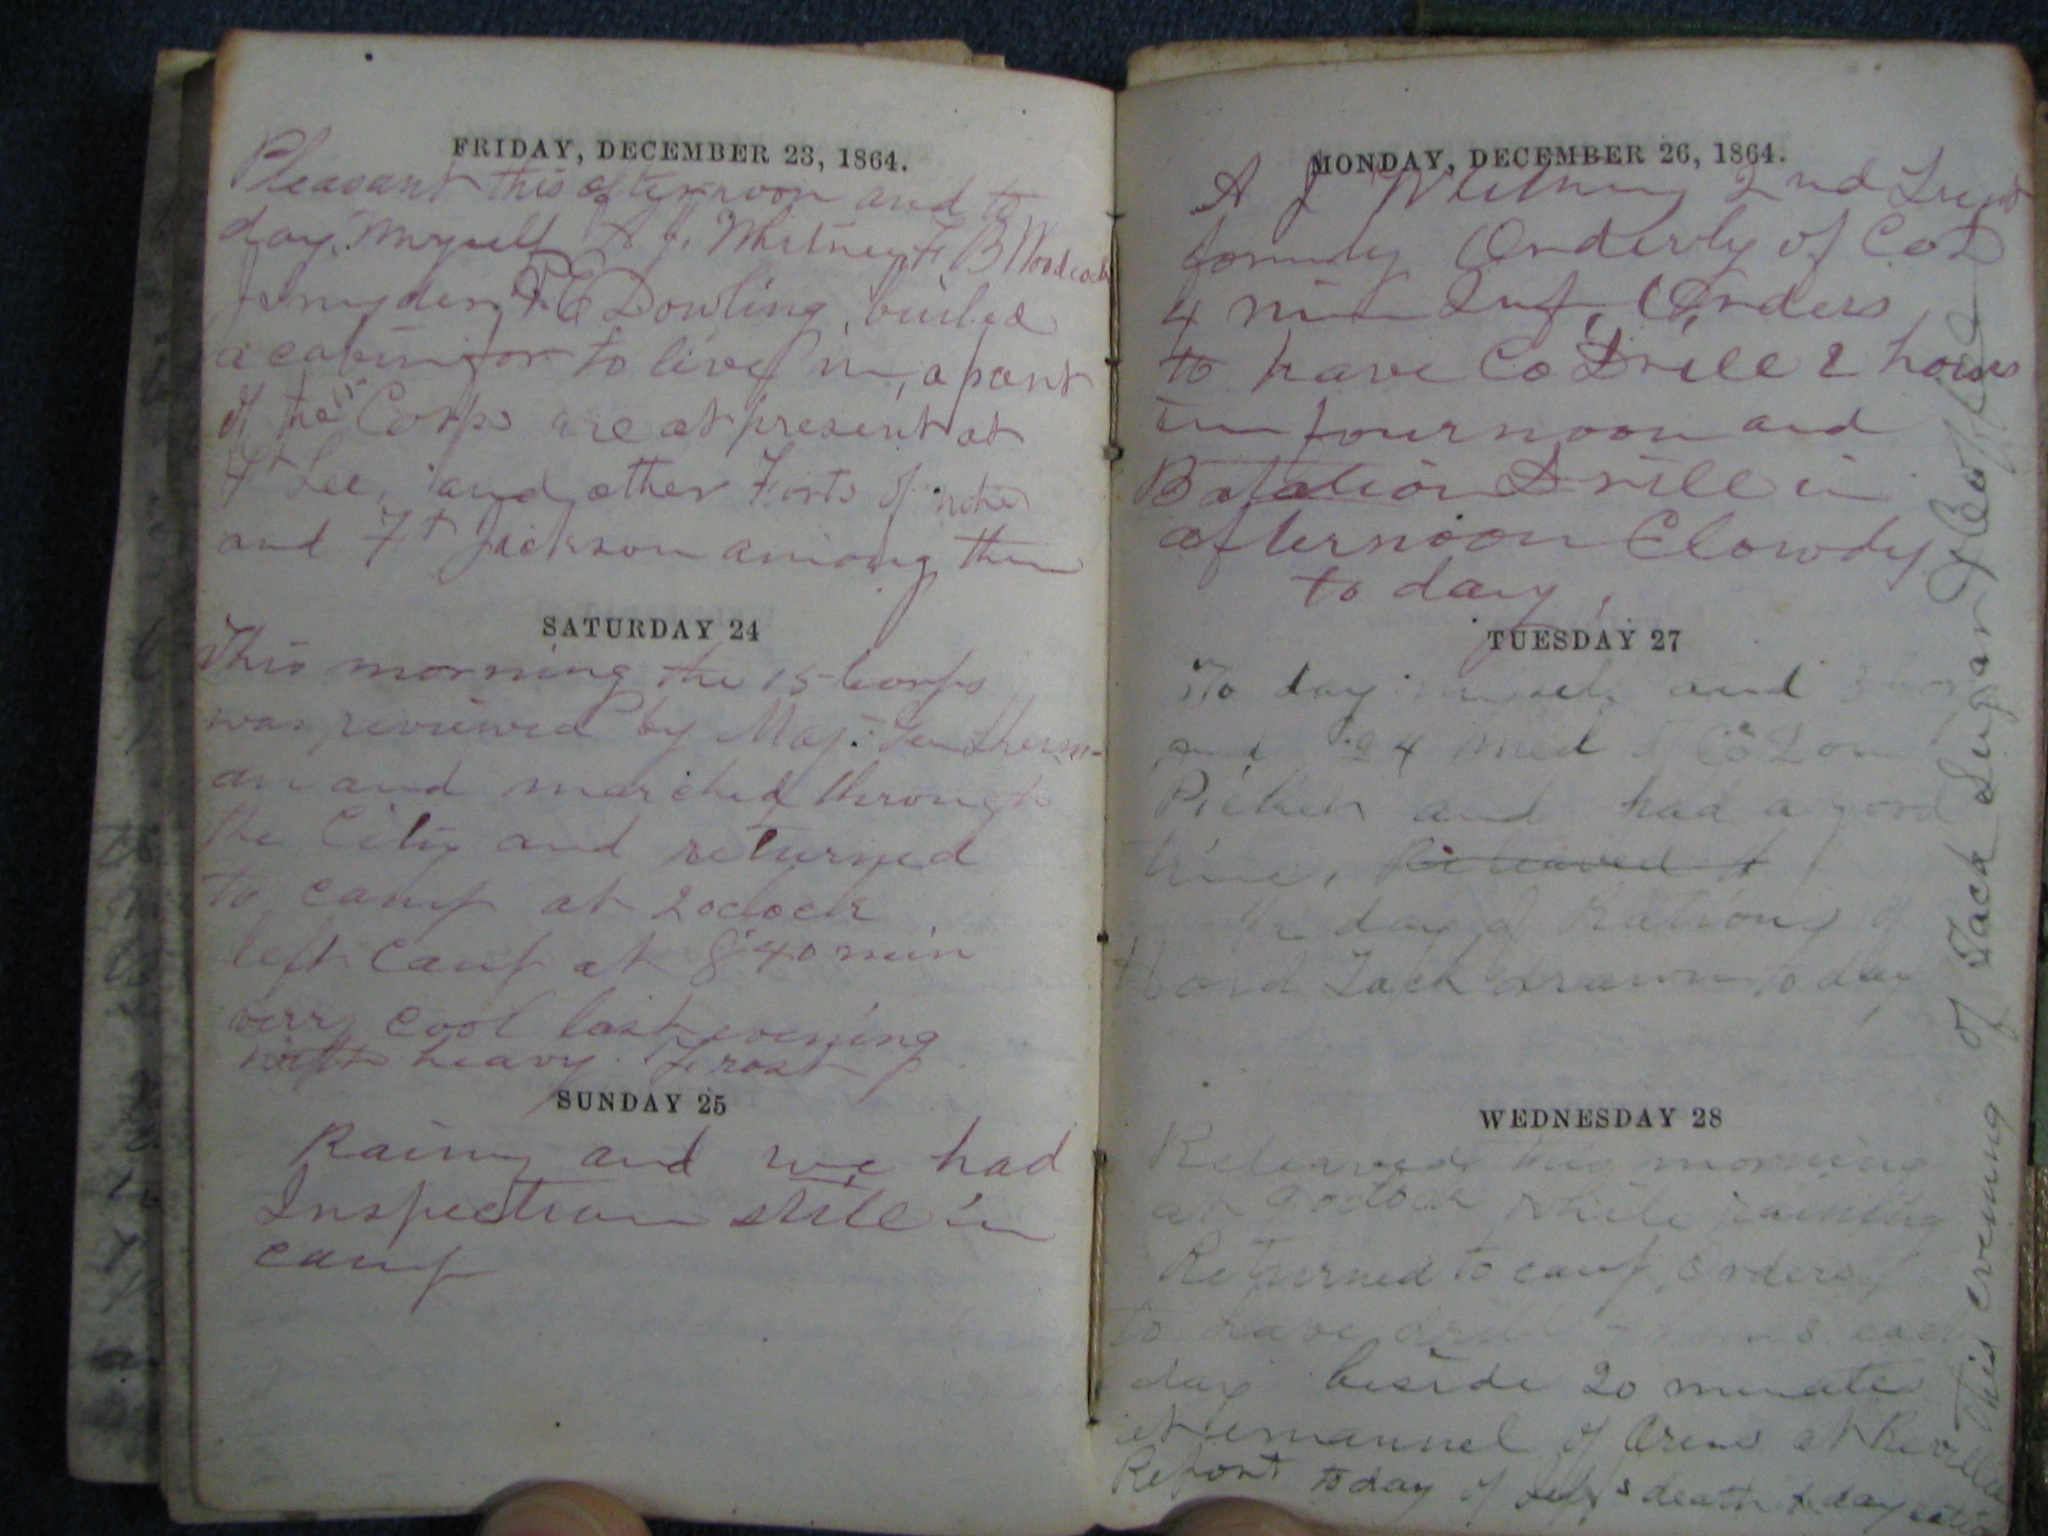 FRIDAY, DECEMBER 23, 1864.
Pleasant this afternoon and to
day. Myself A J. Whitney, F. B Woodcock
J Snyder, T E Dowling, builed
a cabin for to live in, a part
of the 15 Corps are at present at
Ft Lee, and other Forts of note
and Ft Jackson among them
SATURDAY 24
This morning the 15 Corps
was reviewed by Maj. Gen Sherm-
an and marched through
the City and returned
to camp at 2 oclock
left camp at 8 40 min
verry cool last evening
with heavy Frost
SUNDAY 25
Rainy and we had
Inspection still in
camp
MONDAY, DECEMBER 26, 1864.
A J Whitney 2nd Lieut
formly Orderly of Co D
4 Min Inf, Orders
to have Co Drill 2 hours
in fournoon and
Batalion Drill in
afternoon Clowdy
to day,
TUESDAY 27
To day myself and 3
and 24 med of Co on
Picket and had a good
time, Releaved
1/2 day of Rations of
Hard Tack drawn to day
WEDNESDAY 28
Releaved this morning
at 9 oclock while raining
Returned to camp, Orders
to have drill each
day beside 20 minutes
at emannel of Arms at Revellee
Report to day of Jeff's death
This evening of Tack Sugar & Coffee